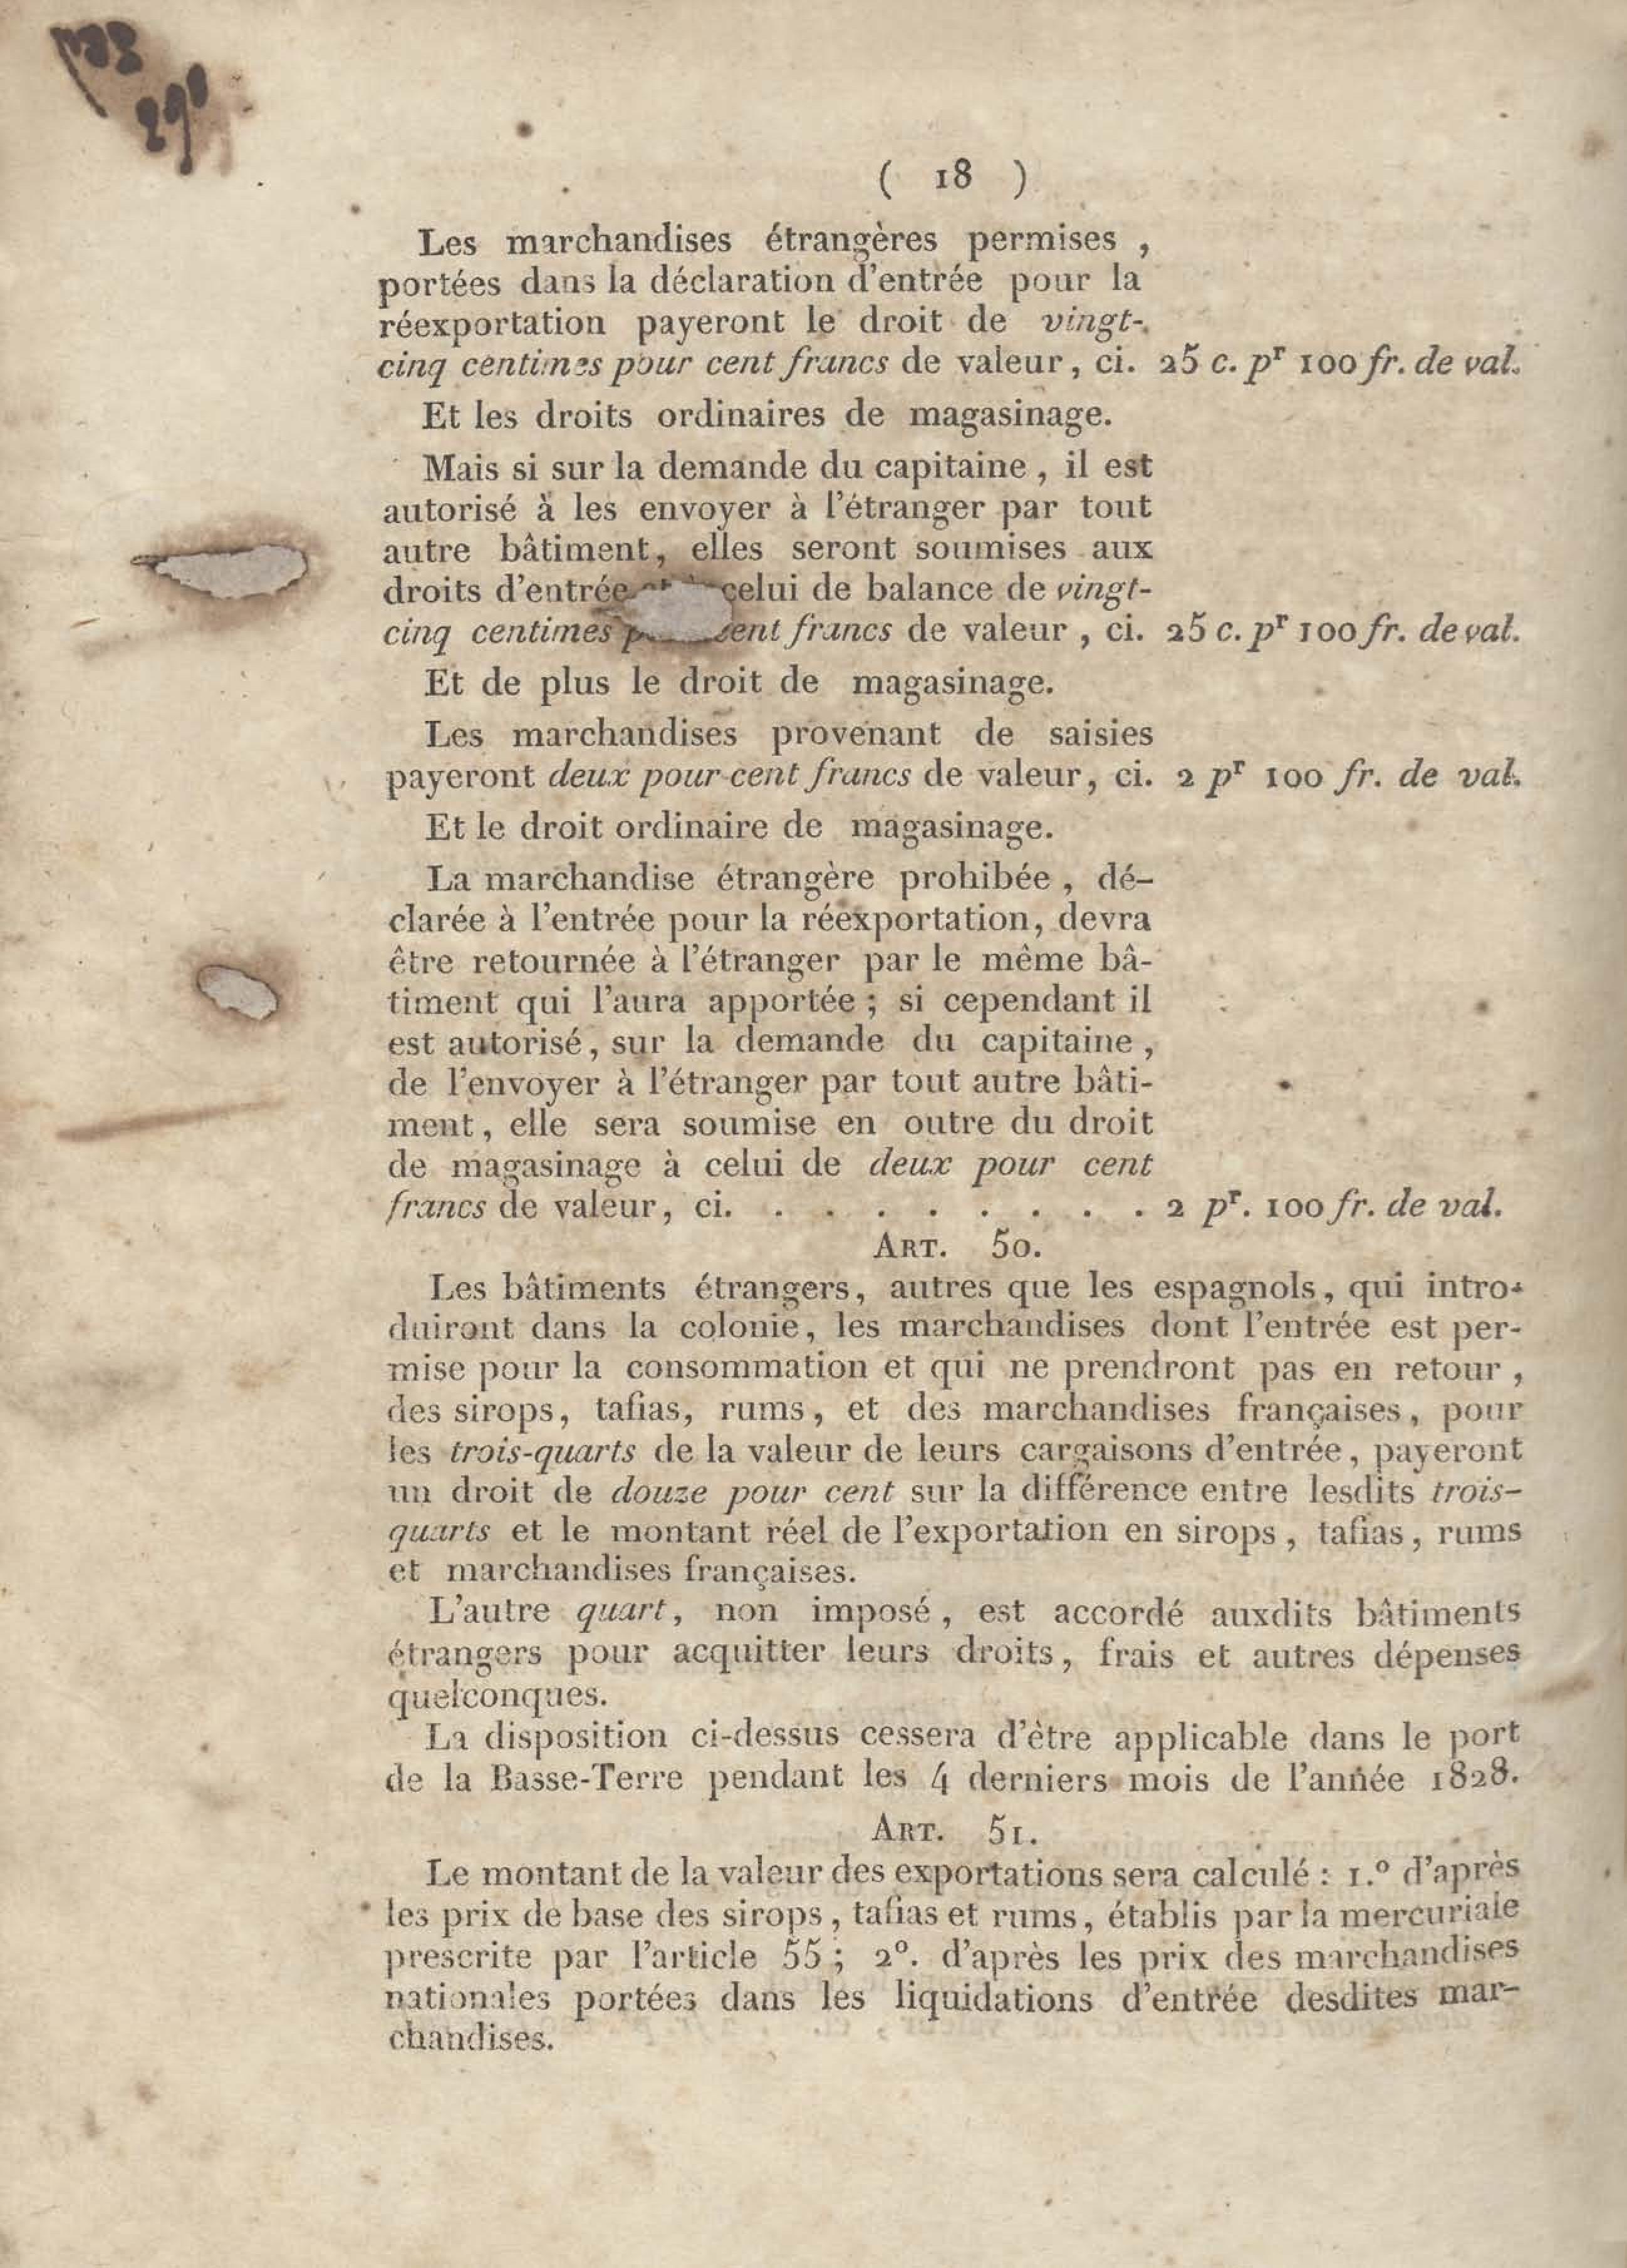 ( 18 )
Les marchandises étrangères permises ,
portées dans la déclaration d'entrée pour la
réexportation payeront le droit de vingt-
cinq centimes pour cent francs de valeur, ci. 25 c. pr 100 fr. de val.
Et les droits ordinaires de magasinage.
Mais si sur la demande du capitaine , il est
autorisé à les envoyer à l'étranger par tout
autre bâtiment, elles seront soumises aux
droits d'entrée et à celui de balance de vingt-
cinq centimes cent francs de valeur , ci. 25 c. pr 100 fr. de val.
Et de plus le droit de magasinage.
Les marchandises provenant de saisies
payeront deux pour cent francs de valeur, ci. 2 pr 100 fr. de val.
Et le droit ordinaire de magasinage.
La marchandise étrangère prohibée , dé-
clarée à l'entrée pour la réexportation, devra
être retournée à l'étranger par le même bâ-
timent qui l'aura apportée ; si cependant il
est autorisé, sur la demande du capitaine ,
de l'envoyer à l'étranger par tout autre bâti-
ment, elle sera soumise en outre du droit
de magasinage à celui de deux pour cent
francs de valeur, ci. . . . . . . . . 2 pr. 100 fr. de val.
ART. 50.
Les bâtiments étrangers, autres que les espagnols, qui intro-
duiront dans la colonie, les marchandises dont l'entrée est per-
mise pour la consommation et qui ne prendront pas en retour ,
des sirops, tafias, rums, et des marchandises françaises, pour
les trois-quarts de la valeur de leurs cargaisons d'entrée, payeront
un droit de douze pour cent sur la différence entre lesdits trois-
quarts et le montant réel de l'exportation en sirops , tafias, rums
et marchandises françaises.
L'autre quart, non imposé, est accordé auxdits bâtiments
étrangers pour acquitter leurs droits, frais et autres dépenses
quelconques.
La disposition ci-dessus cessera d'être applicable dans le port
de la Basse-Terre pendant les 4 derniers mois de l'année 1828.
ART. 51.
Le montant de la valeur des exportations sera calculé : 1.º d'après
les prix de base des sirops, tafias et rums, établis par la mercuriale
prescrite par l'article 55 ; 2º. d'après les prix des marchandises
nationales portées dans les liquidations d'entrée desdites mar-
chandises.